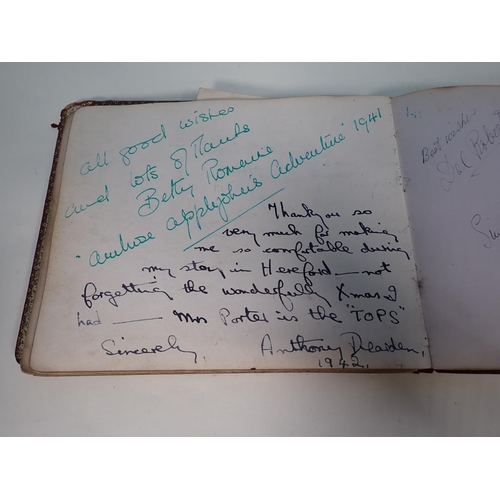 all good wishes
and lots of Thanks
Betty Romaine
"Ambrose Applejohn's Adventure" 1941
Thank you so
very much for making
me so comfortable during
my stay in Hereford — not
forgetting the wonderfully Xmas I
had — Mrs Porter is the "TOPS"
Sincerely,
Anthony Dearden,
1942.
Best wishes